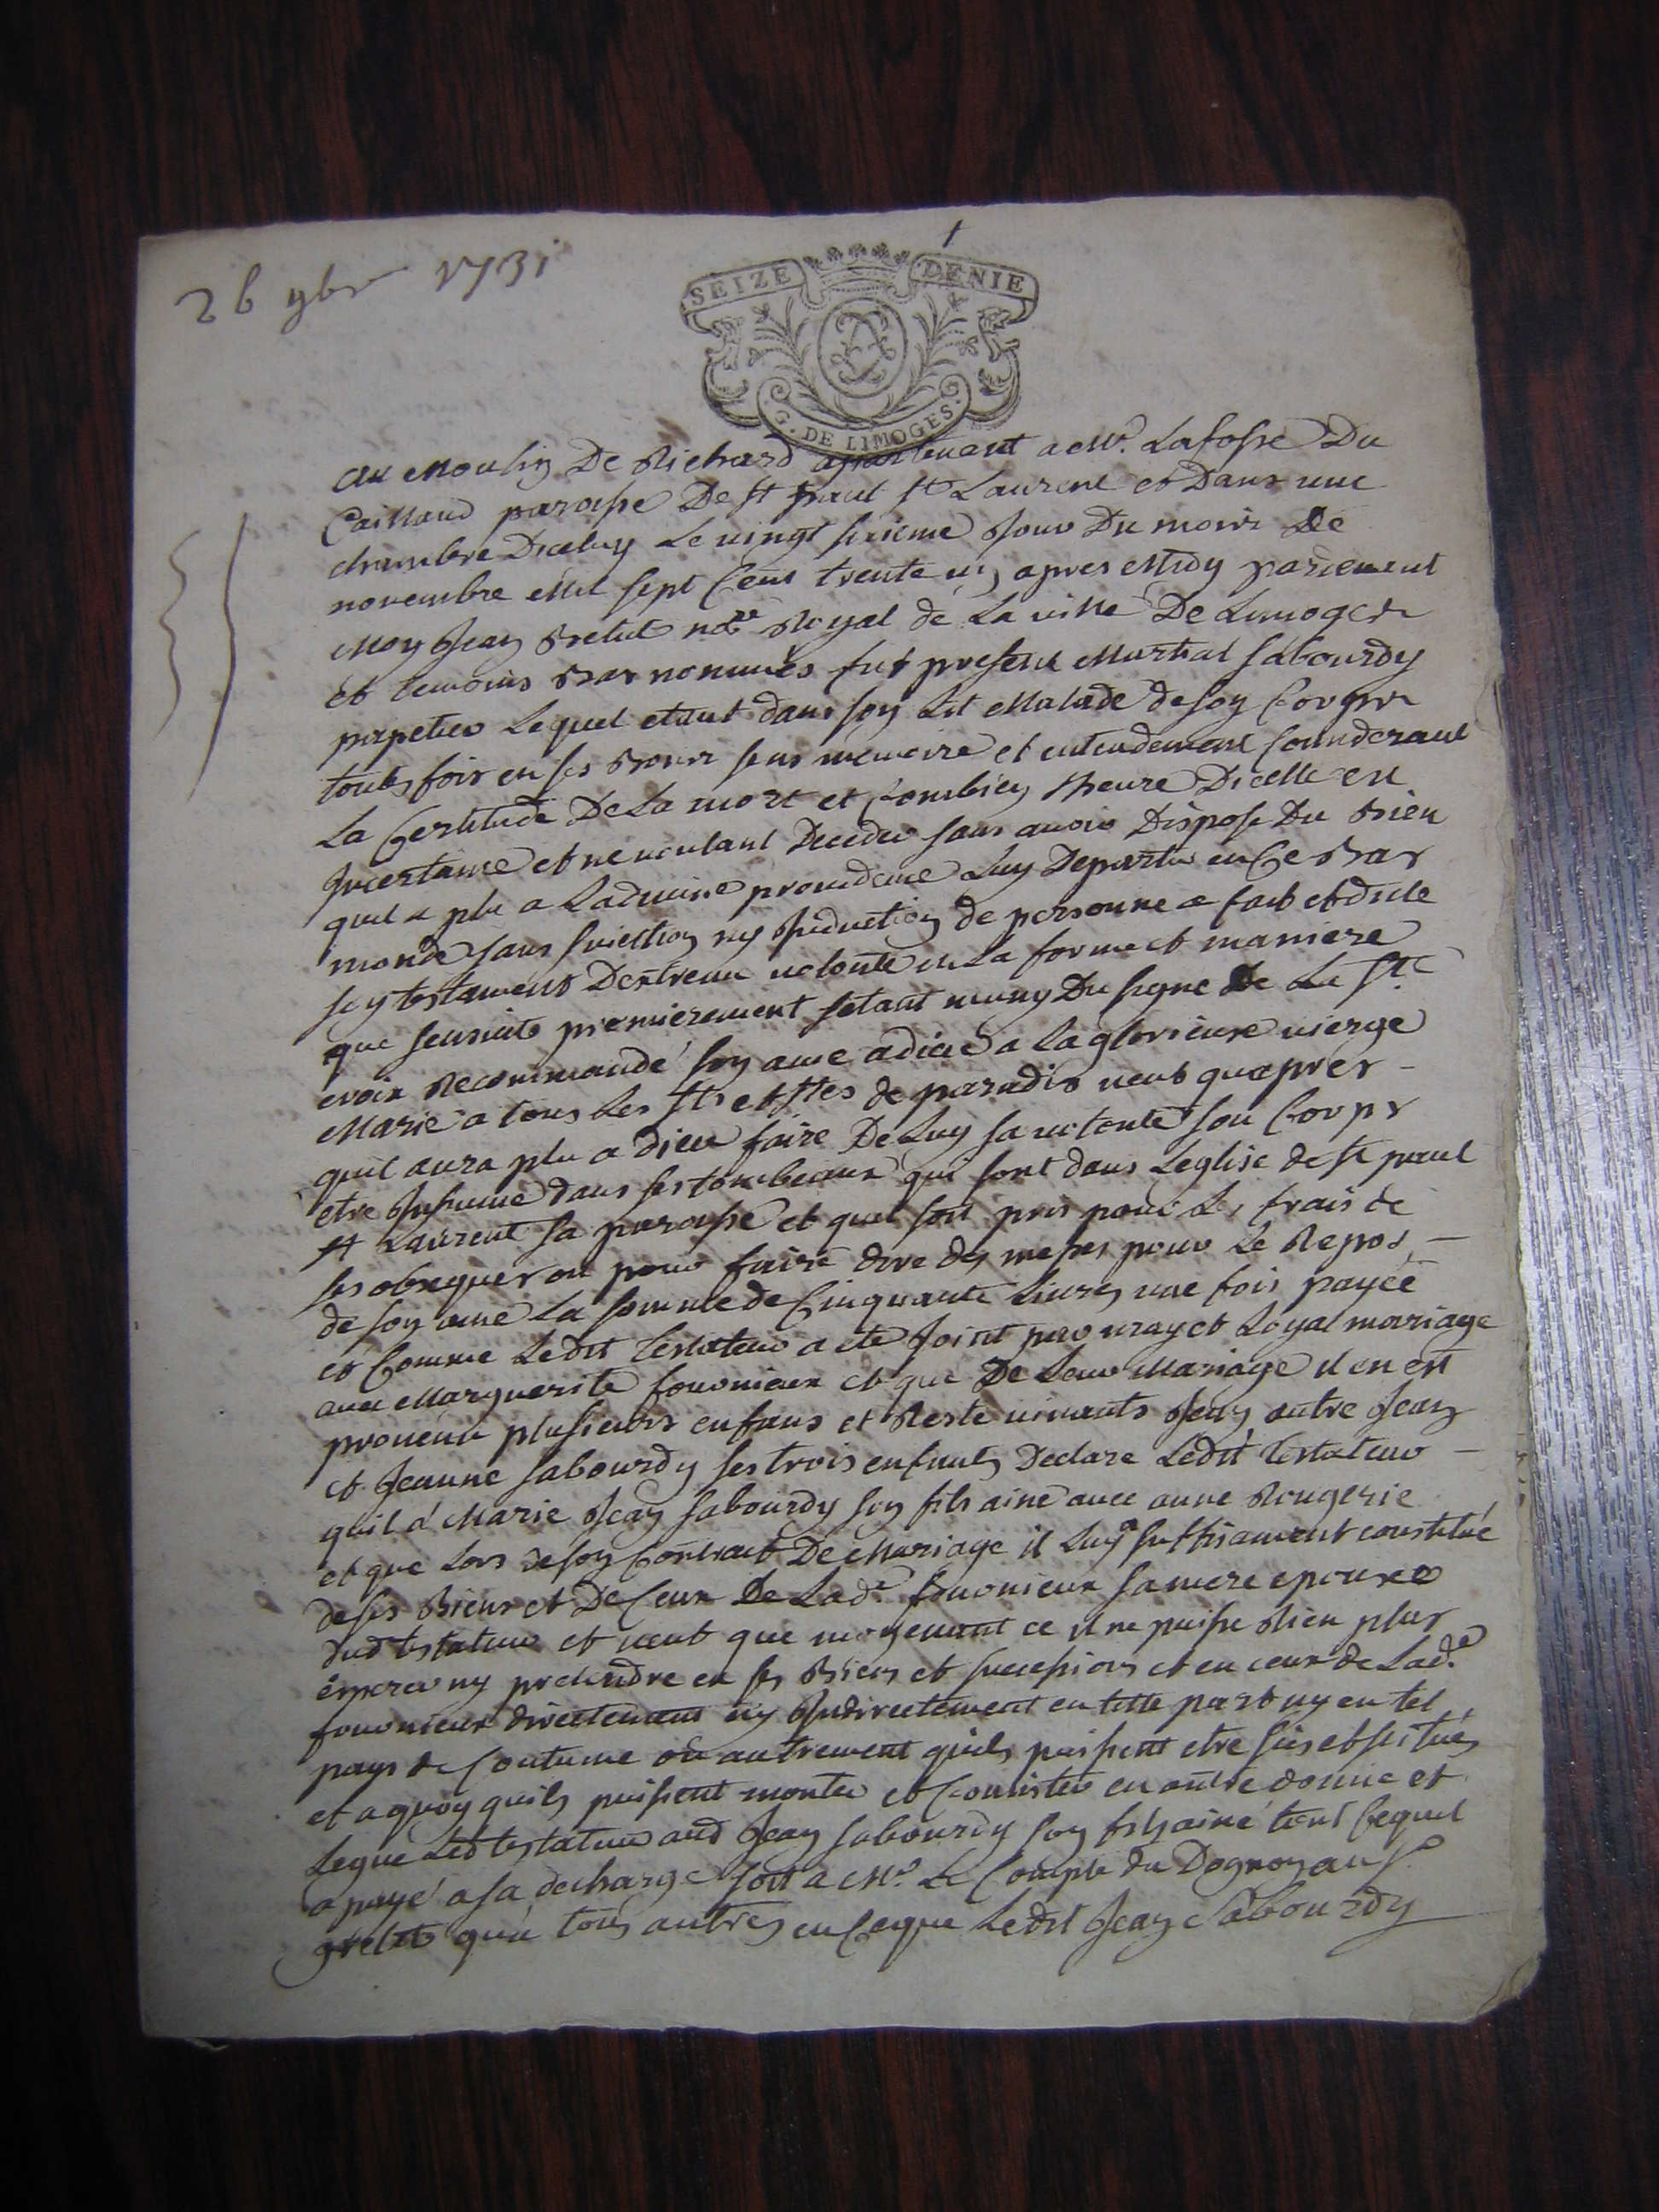 26 9bre 1731
SEIZE DENIE
G. DE LIMOGES.
au Moulin De Richard apartenant a Mr. Lafosse Du
Caillaud paroisse De st paul st Laurent et Dans une
chambre Diceluy Le vingt sixieme Jour Du mois De
novembre Mil sept Cens trente un apres Midy pardevent
Moy Jean notre Royal de La ville De Limoges
et temoins Bas nommés fut present Martial Sabourdy
papetier Lequel etant dans son Lit Malade de son Corps
toutesfois en ses Bons sens memoire et entendement Considerant
La Certitude De La mort et Combien Lheure Dicelle est
Incertaine et ne voulant Deceder sans avoir Dispose Du Bien
quil a plu a La divine providence Luy Departir en Ce Bas
monde sans suiection ny Induction de personne a fait et dicte
son testament Dextreme volonte en La forme et maniere
que sensuit premierement setant muny Du signe De La Ste
croix Recommandé son ame a dieu a La glorieuse vierge
Marie a tous Les sts et stes de paradis veut quapres
quil aura plu a dieu faire De Luy sa volonte son Corps
etre Inhumé dans ses tombeaux qui sont dans Leglise de st paul
st Laurent sa paroisse et quil soit pris pour Les frais de
ses obseques ou pour faire dire des messes pour Le Repos
de son ame La somme de Cinquante Livres une fois payée
et Comme Ledit testateur a eté Joint par vray et Loyal mariage
avec Marguerite fournieux et que De Leur Mariage il en est
provenu plusieurs enfans et Reste vivants Jean, autre Jean
et Jeanne Sabourdy ses trois enfants Declare Ledit testateur
quil a Marie Jean Sabourdy son fils ainé avec anne Rougerie
et que Lors de son Contract De Mariage il Luy a suffisament constitué
de ses Biens et De Ceux De Lade fournieux sa mere epouse
dud testateur et veut que moyenant ce il ne puisse Rien plus
esperer ny pretendre en ses Biens et successions et en ceux de Lade
fournieux directement ny Indirectement en telle part ny en tel
pays de Coutume ou autrement quils puissent etre sis et situés
et a quoy quils puissent monter et Consister en outre donne et
Legue Led testateur aud Jean Sabourdy son fils ainé tout Cequil
a payé a sa decharge soit a Mr. Le Compte du Dognon au Sr
grelet qua tous autres en Ceque Ledit Jean Sabourdy